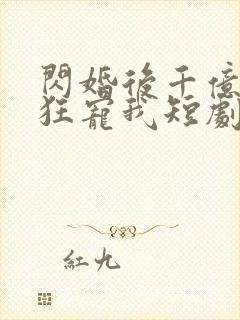 閃婚後千億
狂寵我短劇
紅九